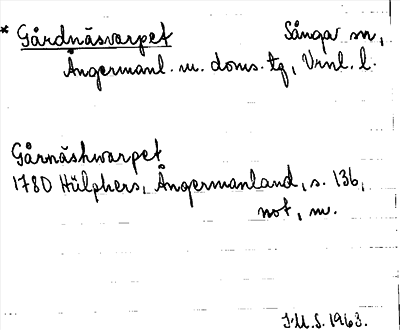 * Gårdnäsvarpet Sånga sn,
Ångermanl. m. doms. tg, Vrnl. l.
Gårnäshvarpet
1780 Hülphers, Ångermanland, s. 136,
not, m.
I.M.S. 1963.